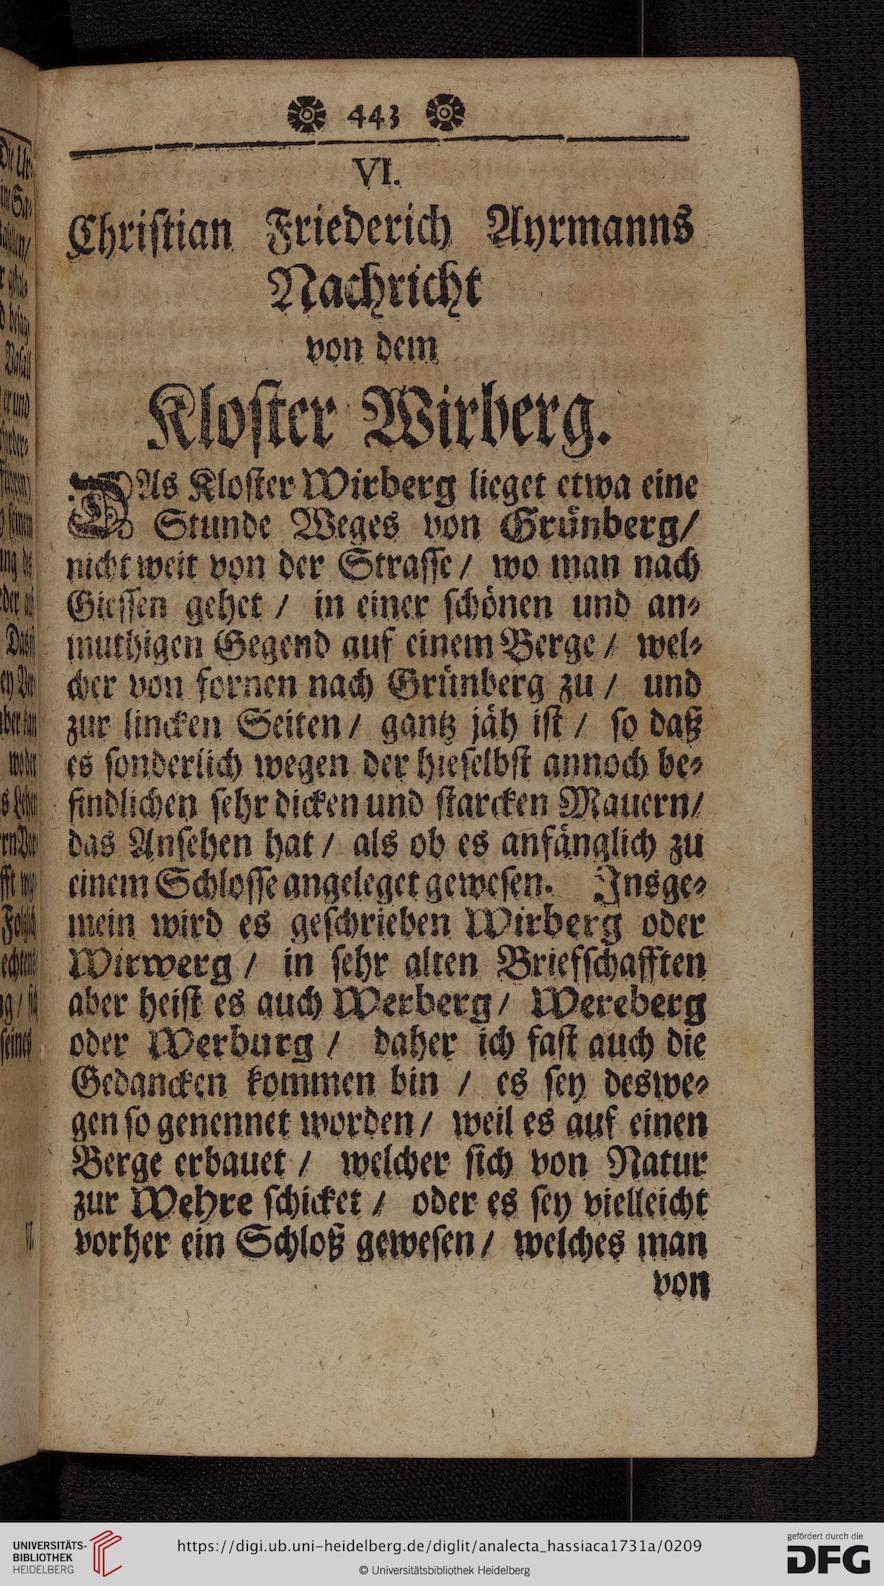 443
VI.
Chriſtian Friederich Ayrmanns
Nachricht
von dem
Kloſter Wirberg.
DAs Kloſter Wirberg lieget etwa eine
Stunde Weges von Grünberg/
nicht weit von der Straſſe / wo man nach
Gieſſen gehet / in einer ſchönen und an⸗
muthigen Gegend auf einem Berge / wel⸗
cher von fornen nach Grünberg zu / und
zur lincken Seiten / gantz jäh iſt / ſo daß
es ſonderlich wegen der hieſelbſt annoch be⸗
findlichen ſehr dicken und ſtarcken Mauern/
das Anſehen hat / als ob es anfänglich zu
einem Schloſſe angeleget geweſen. Insge⸗
mein wird es geſchrieben Wirberg oder
Wirwerg / in ſehr alten Briefſchafften
aber heiſt es auch Werberg / Wereberg
oder Werburg / daher ich faſt auch die
Gedancken kommen bin / es ſey deswe⸗
gen ſo genennet worden / weil es auf einen
Berge erbauet / welcher ſich von Natur
zur Wehre ſchicket / oder es ſey vielleicht
vorher ein Schloß geweſen / welches man
von
UNIVERSITÄTS-
BIBLIOTHEK
HEIDELBERG
https://digi.ub.uni-heidelberg.de/diglit/analecta_hassiaca1731a/0209
© Universitätsbibliothek Heidelberg
gefördert durch die
DFG